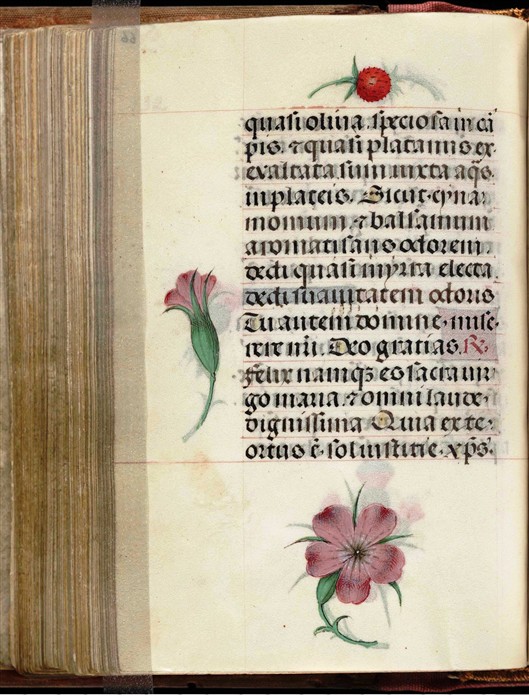 quasi oliua speciosa in cā
pis. ⁊ quasi platanus ex
exaltata sum iuxta aq̄s.
in plateis. Sicut cyna
momum. ⁊ balsamum
aromatisans odorem
dedi quasi myrra electa.
dedi suauitatem odoris
Tu autem domine mise
rere nr̄i. Deo gracias. ℟.
Felix namqꝫ es sacra uir
go maria. ⁊ omni laude
dignissima Quia ex te
ortus ē. sol iusticie. xp̄s.